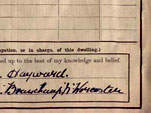 upation, or in charge, of this dwelling.)
ed up to the best of my knowledge and belief.
Hayward.
Beauchamp St Worcester